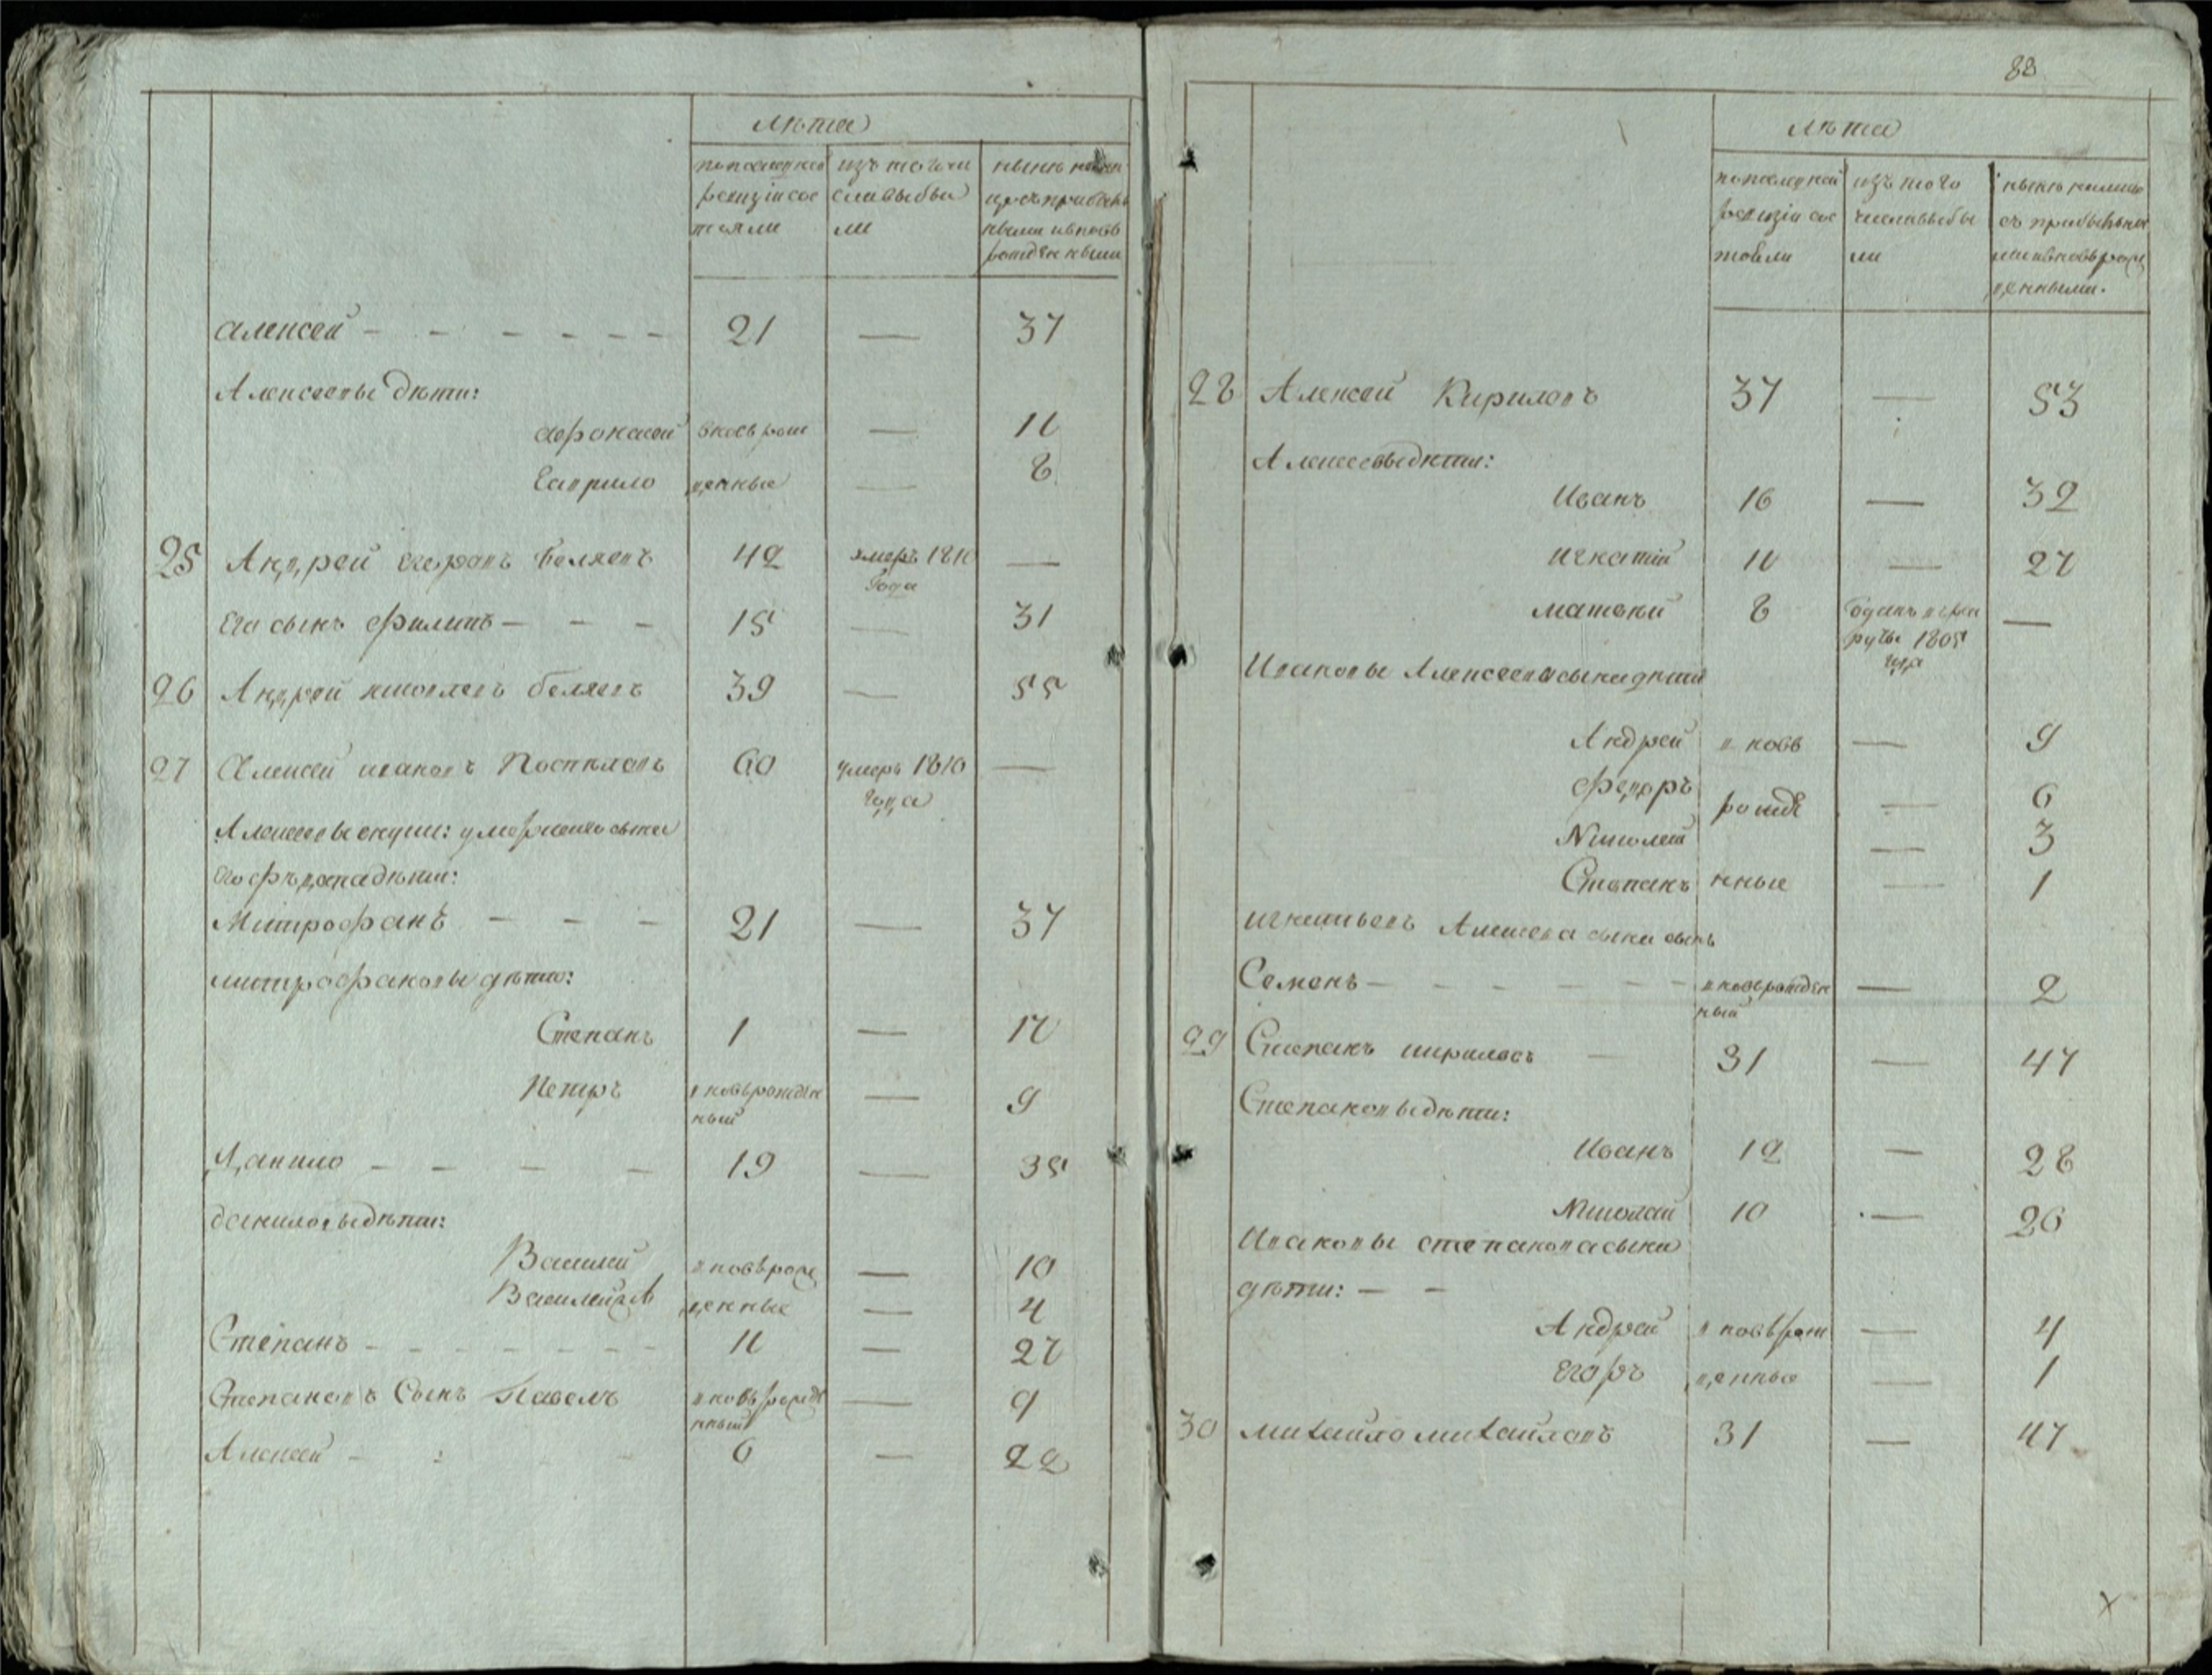 лѣта
попослѣдней ревизіи сос тояли
изъ того чи славыбы ли
нынѣ налицо съ прибылы ными и вновь рожденными
алексей 21 — 37
Алексеевы дѣти:
афонасей вновь рож — 11
Гаврило денные — 8
25 Андрей Беляевъ 42 умеръ 1810 года —
его сынъ филипъ 15 — 31
26 Андрей беляевъ 39 — 55
27 Алексей ивановъ 60 умеръ 1810 года —
Алексеевы внуки: умершаго сына
его дѣти:
Митрофанъ 21 — 37
митрофановы дѣти:
Степанъ 1 — 17
Петръ вновьрожден ный — 9
Данило 19 — 35
даниловы дѣти:
Василей вновьрож — 10
Василей 2й денные — 4
Степанъ 11 — 27
Степановъ Сынъ Павелъ вновьрожде нный — 9
Алексей 6 — 22
83
лѣта
попослѣдней ревизіи сос тояли
изъ того числавыбы ли
нынѣ налицо съ прибылыны ми ивновьрож денными.
28 Алексей Кириловъ 37 — 53
Алексеевы дѣти:
Иванъ 16 — 32
игнатий 11 — 27
матвей 8 отданъ в рек руты 1805 года —
Ивановы Алексеева сына дѣти
Андрей в новь — 9
Федоръ рожде — 6
Николай — 3
Степанъ нные — 1
игнатьевъ Алексеева сына сынъ
Семенъ вновьрожден ный — 2
29 Степанъ кириловъ 31 — 47
Степановы дѣти:
Иванъ 12 — 28
Николай 10 — 26
Ивановы степанова сына
дѣти:
Андрей вновьрож — 4
егоръ денные — 1
30 михайло михайловъ 31 — 47